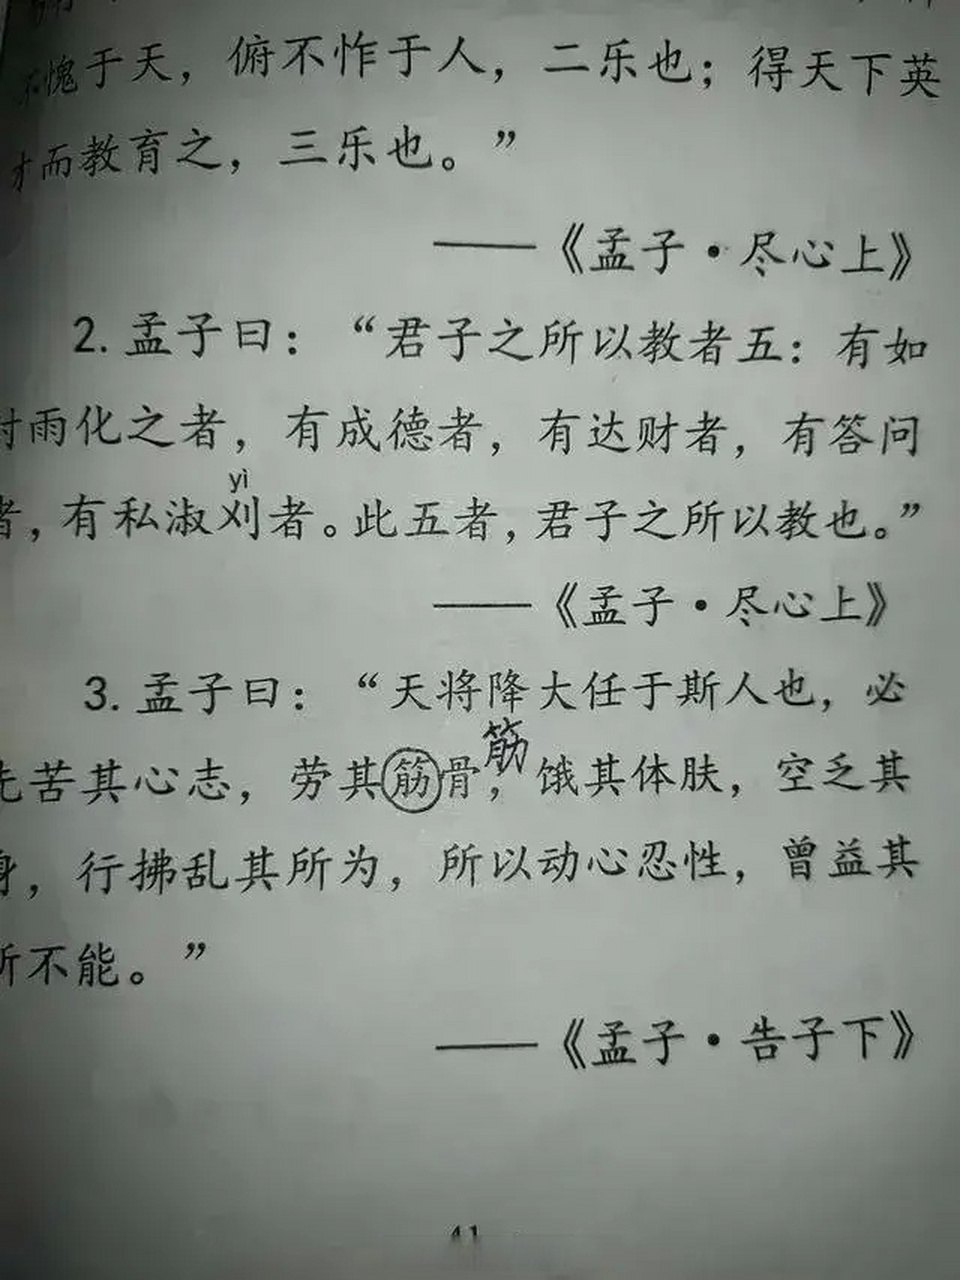 不愧于天，俯不怍于人，二乐也；得天下英
才而教育之，三乐也。”
——《孟子·尽心上》
2. 孟子曰：“君子之所以教者五：有如
时雨化之者，有成德者，有达财者，有答问
yì
者，有私淑刈者。此五者，君子之所以教也。”
——《孟子·尽心上》
3. 孟子曰：“天将降大任于斯人也，必
筋
先苦其心志，劳其筋骨，饿其体肤，空乏其
身，行拂乱其所为，所以动心忍性，曾益其
所不能。”
——《孟子·告子下》
41